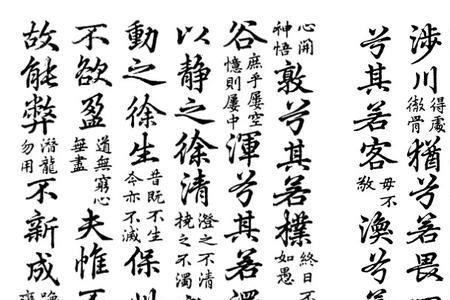 涉川得處徹骨猶兮若畏
兮其若客毋不敬渙兮若
心開神悟敦兮其若樸終日不如愚
谷庶乎屢空憶則屢中渾兮其若濁
以静之徐清澄之不清撓之不濁
動之徐生昔既不生今亦不滅保
不欲盈道無窮心無盡夫惟不
故能弊潛龍勿用不新成